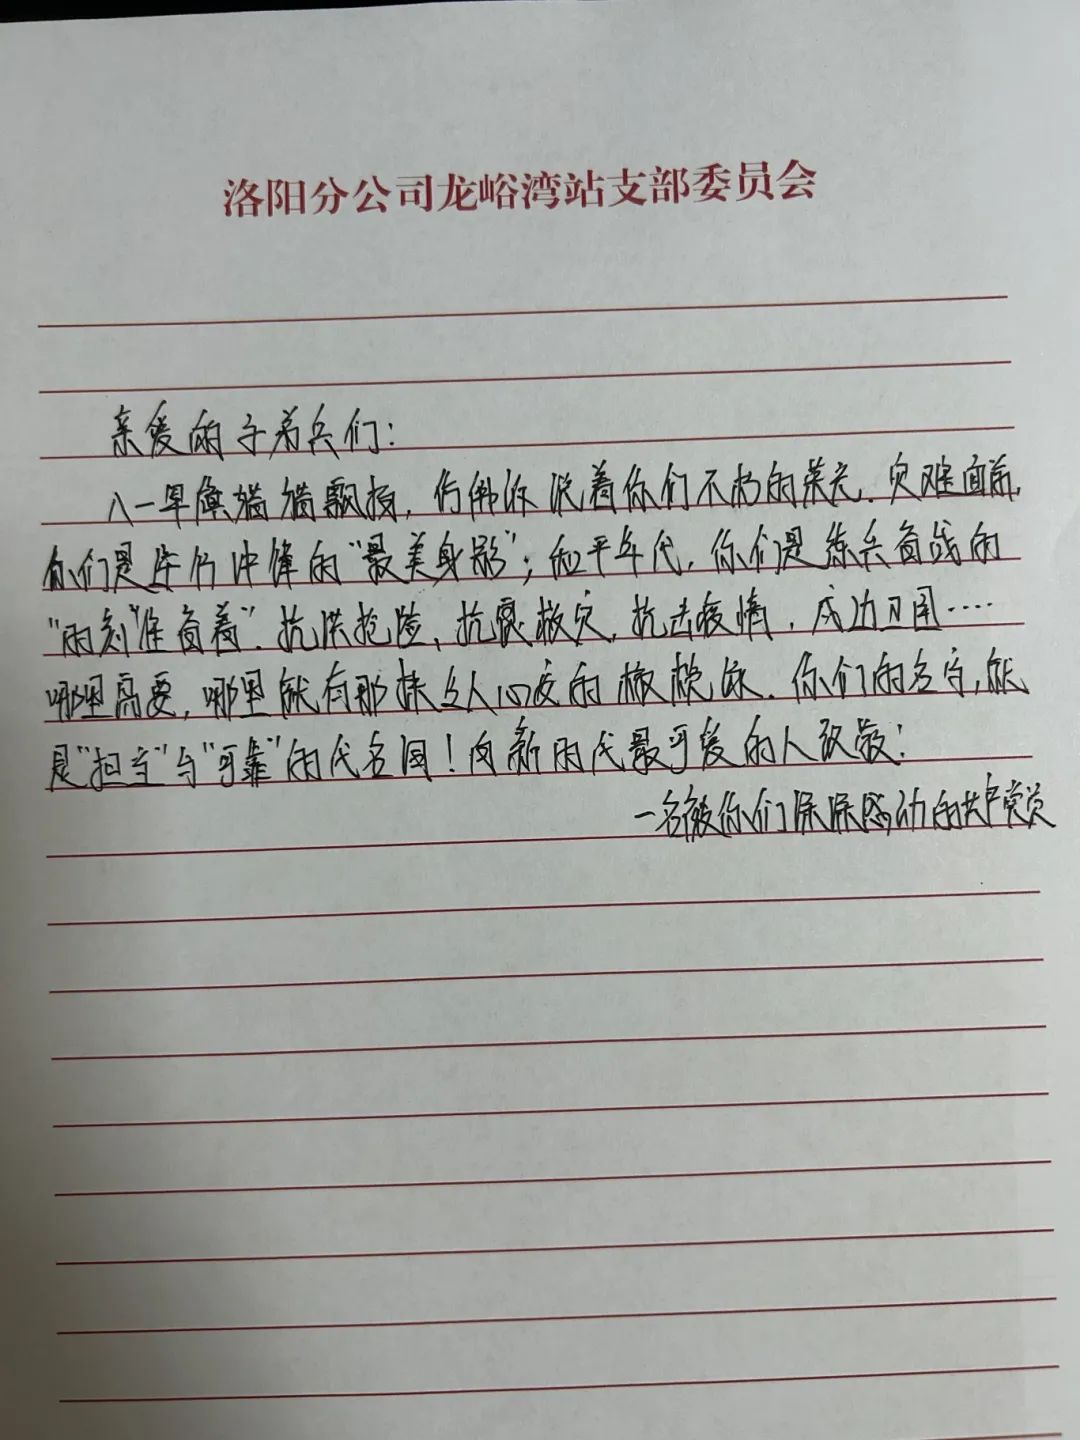 洛阳分公司龙峪湾站支部委员会
亲爱的子弟兵们：
八一军旗猎猎飘扬，仿佛诉说着你们不朽的荣光.灾难面前,
你们是逆行冲锋的“最美身影”；和平年代,你们是练兵备战的
“时刻准备着”.抗洪抢险,抗震救灾,抗击疫情,戍边卫国····
哪里需要,哪里就有那抹令人心安的橄榄绿.你们的名字,就
是“担当”与“可靠”的代名词！向新时代最可爱的人致敬！
一名被你们深深感动的共产党员